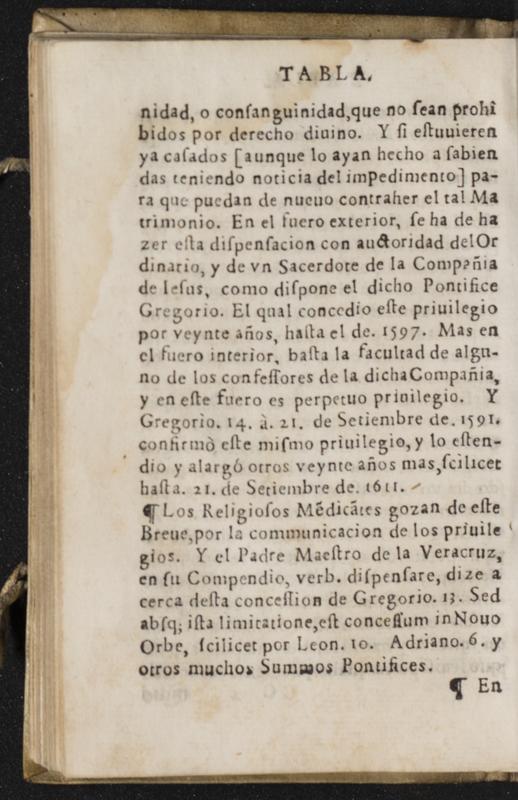 TABLA.
nidad, o consanguinidad,que no sean prohî
bidos por derecho diuino. Y si estuuieren
ya casados [aunque lo ayan hecho a sabien
das teniendo noticia del impedimento] pa-
ra que puedan de nueuo contraher el tal Ma
trimonio. En el fuero exterior, se ha de ha
zer esta dispensacion con auctoridad delOr
dinario, y de vn Sacerdote de la Compañia
de Iesus, como dispone el dicho Pontifice
Gregorio. El qual concedio este priuilegio
por veynte años, hasta el de. 1597. Mas en
el fuero interior, basta la facultad de algu-
no de los confessores de la dichaCompañia,
y en este fuero es perpetuo priuilegio. Y
Gregorio. 14. à. 21. de Setiembre de. 1591.
confirmò este mismo priuilegio, y lo esten-
dio y alargó otros veynte años mas,scilicet
hasta. 21. de Setiembre de. 1611.
¶ Los Religiosos Mẽdicãtes gozan de este
Breue,por la communicacion de los priuile
gios. Y el Padre Maestro de la Veracruz,
en su Compendio, verb. dispensare, dize a
cerca desta concession de Gregorio. 13. Sed
absq; ista limitatione,est concessum inNouo
Orbe, scilicet por Leon. 10. Adriano. 6. y
otros muchos Summos Pontifices.
¶ En